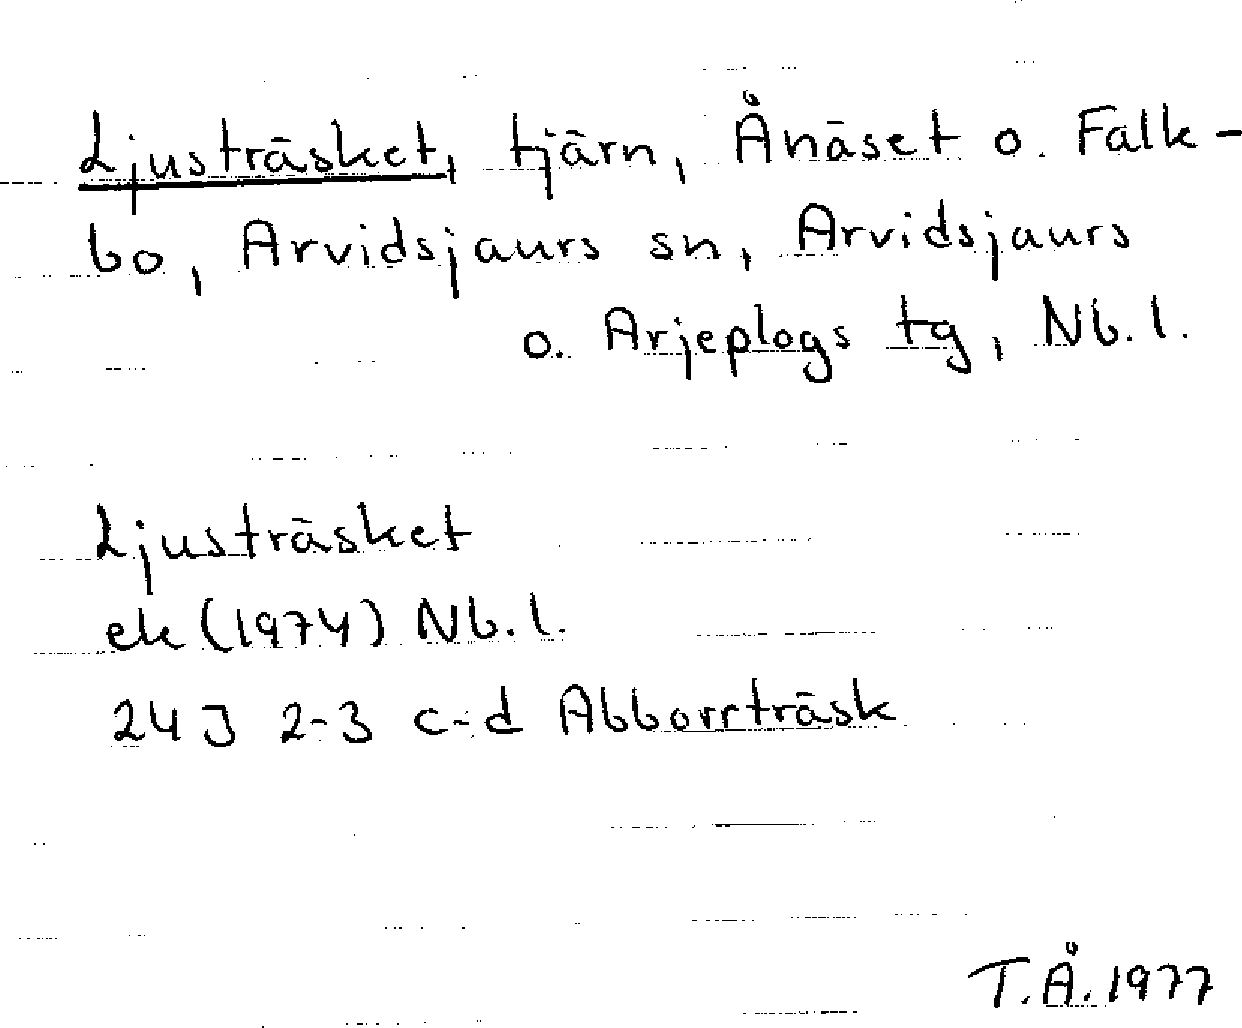 Ljusträsket, tjärn, Ånäset o. Falk-
bo, Arvidsjaurs sn, Arvidsjaurs
o. Arjeplogs tg, Nb.l.
Ljusträsket
ek (1974) Nb.l.
24J 2-3 c-d Abborrträsk
T.Å.1977